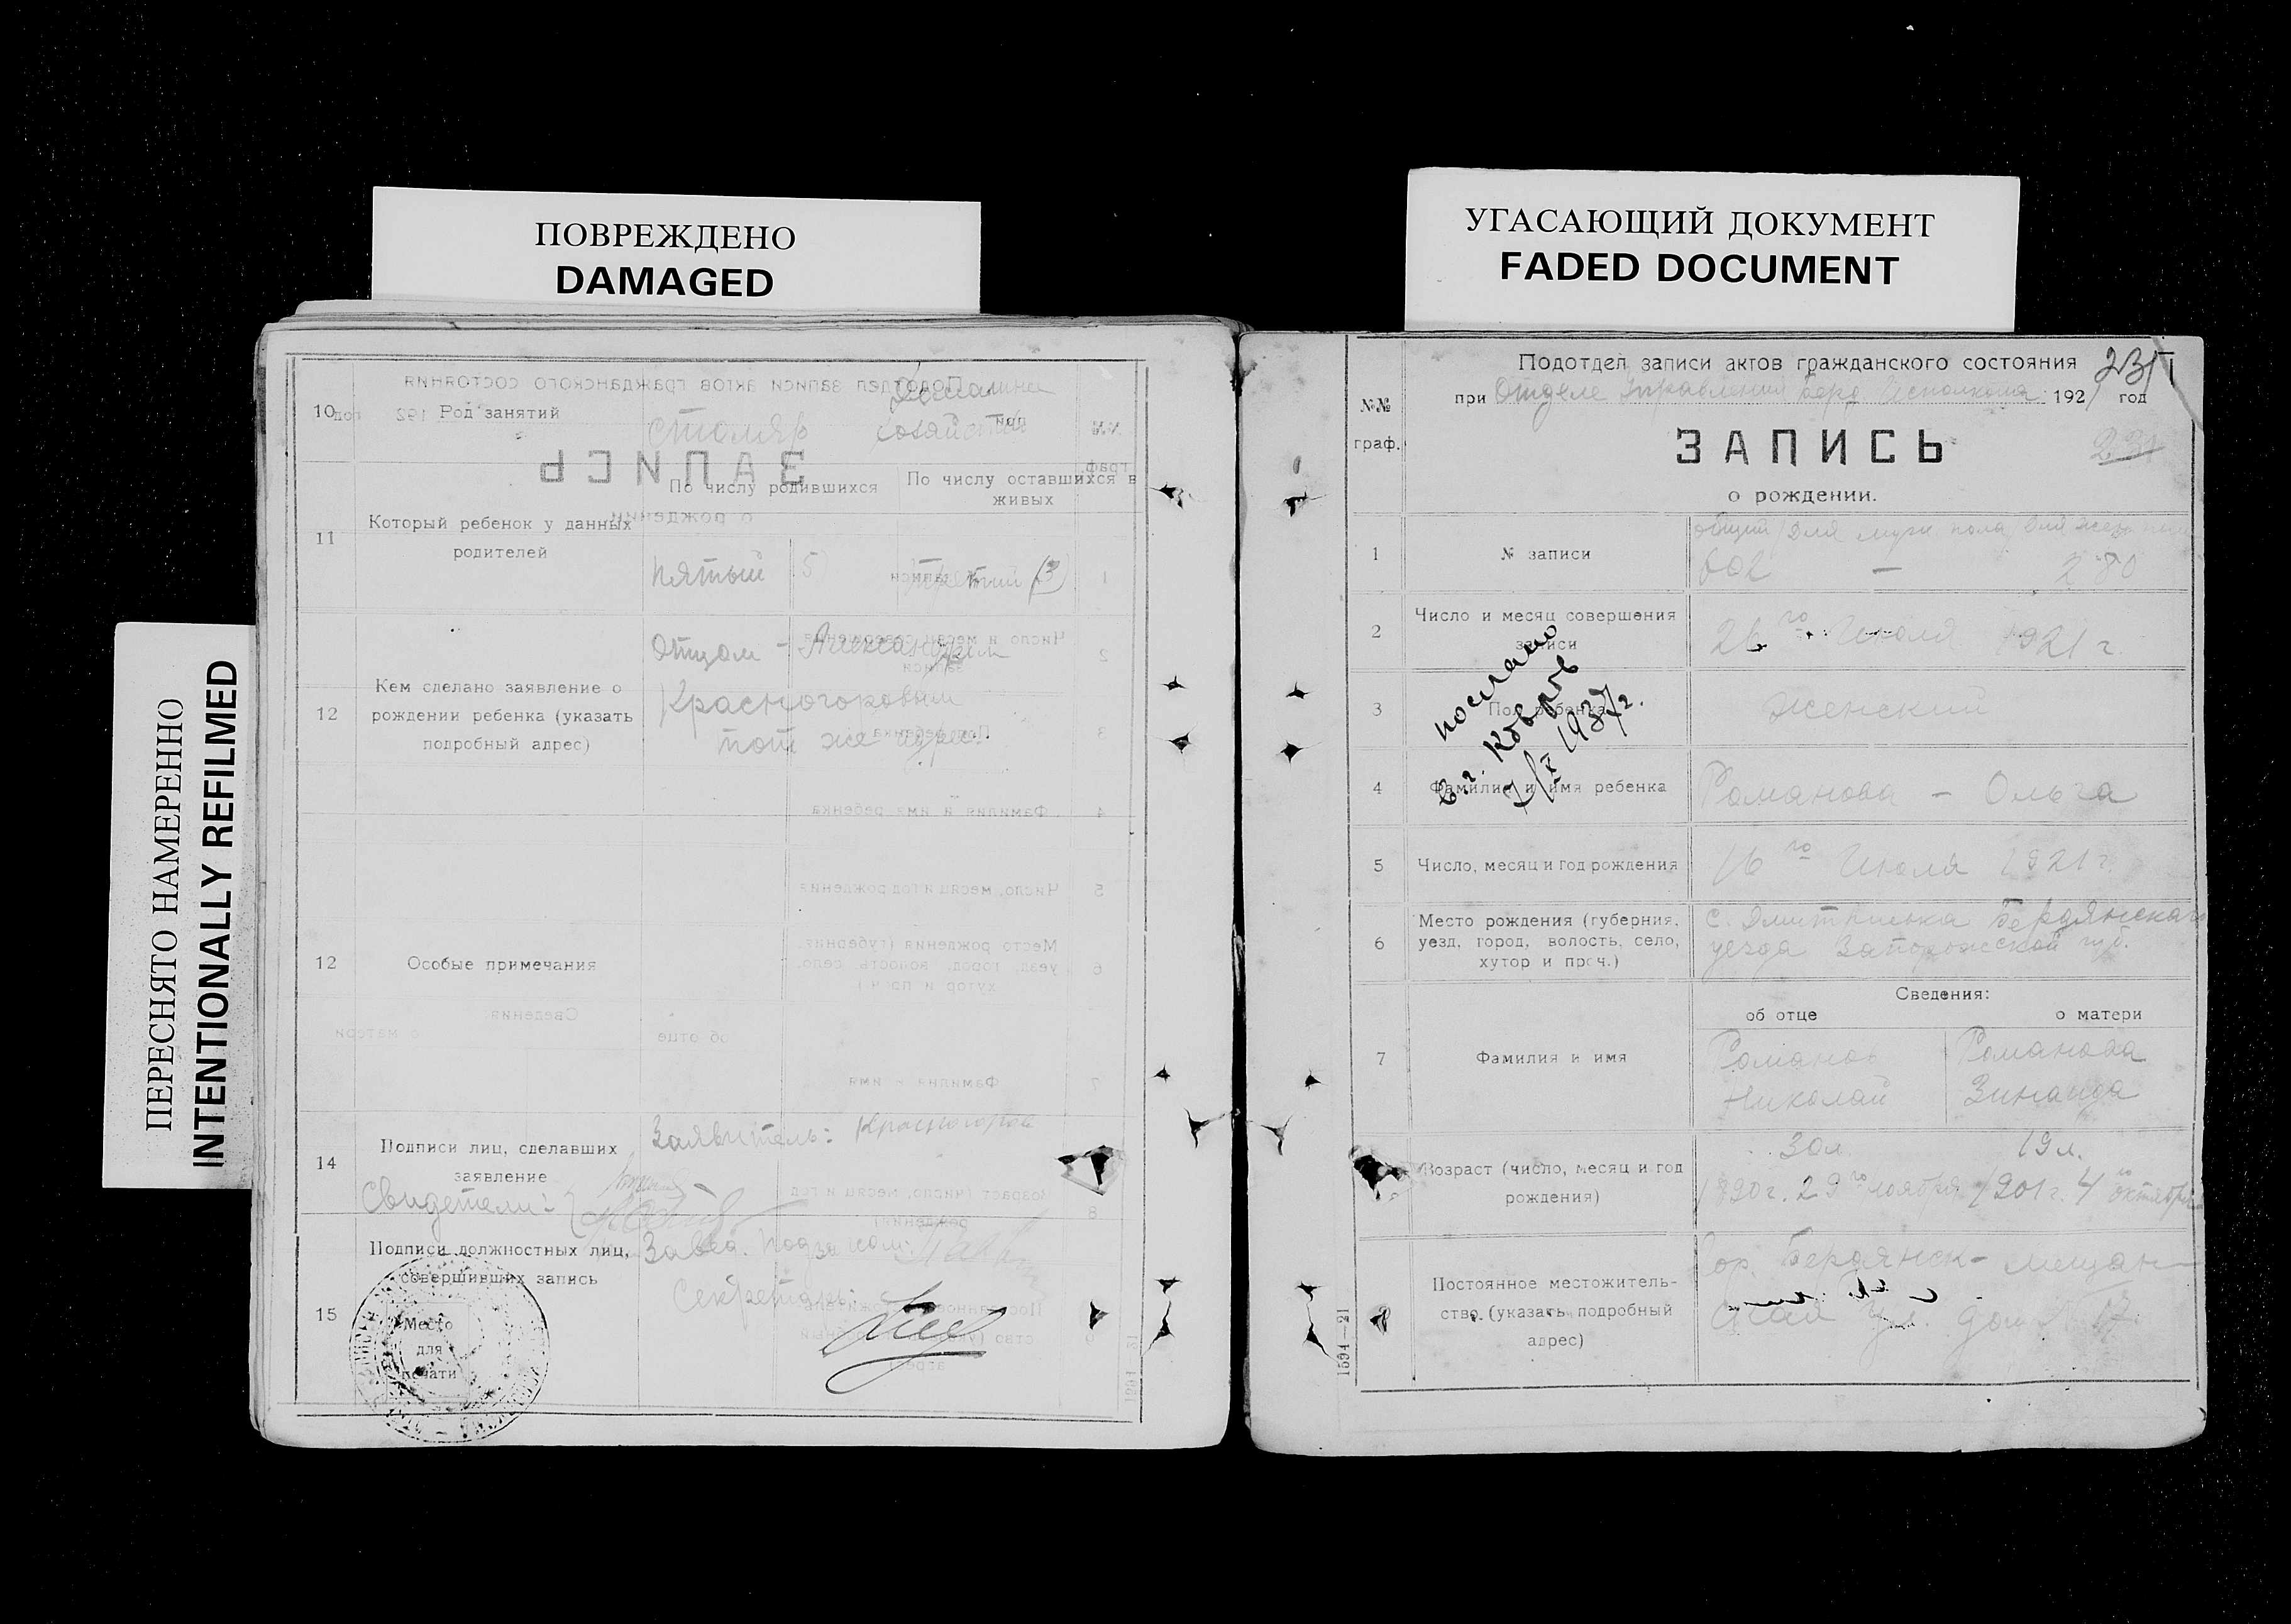 ПОВРЕЖДЕНО
DAMAGED
УГАСАЮЩИЙ ДОКУМЕНТ
FADED DOCUMENT
ПЕРЕСНЯТО НАМЕРЕННО
INTENTIONALLY REFILMED
10 Род занятий
столяр
11 Который ребенок у данных родителей
По числу родившихся
По числу оставшихся в живых
пятый 5)
третий (3)
12 Кем сделано заявление о рождении ребенка (указать подробный адрес)
Отцом - Александром
Красногоровым
тот же адрес.
12 Особые примечания
14 Подписи лиц, сделавших заявление
Заявитель: Красногоров
Свидетели:
15 Подписи должностных лиц, совершивших запись
Завед.
Секретарь:
Место
для
печати
Подотдел записи актов гражданского состояния
231
при Отделе Управления Берд. Исполкома 1921 год
№№
граф.
ЗАПИСЬ
231
о рождении.
1 № записи
общий для муж. пола для жен. пола
602 — 280
2 Число и месяц совершения записи
26го Июля 1921 г.
3 Пол ребенка
Женский
послано
в г. Ковров
7/X 1937 г.
4 Фамилия и имя ребенка
Романова - Ольга
5 Число, месяц и год рождения
16го Июля 1921 г.
6 Место рождения (губерния, уезд, город, волость, село, хутор и проч.)
с. Дмитриевка Бердянского
уезда Запорожской губ.
Сведения:
об отце
о матери
7 Фамилия и имя
Романов
Николай
Романова
Зинаида
Возраст (число, месяц и год рождения)
30 л.
19 л.
1890 г. 29го ноября
1901 г. 4го октября
Постоянное местожительство (указать подробный адрес)
Гор. Бердянск - мещан
ская ул. дом № 17.
1594—21